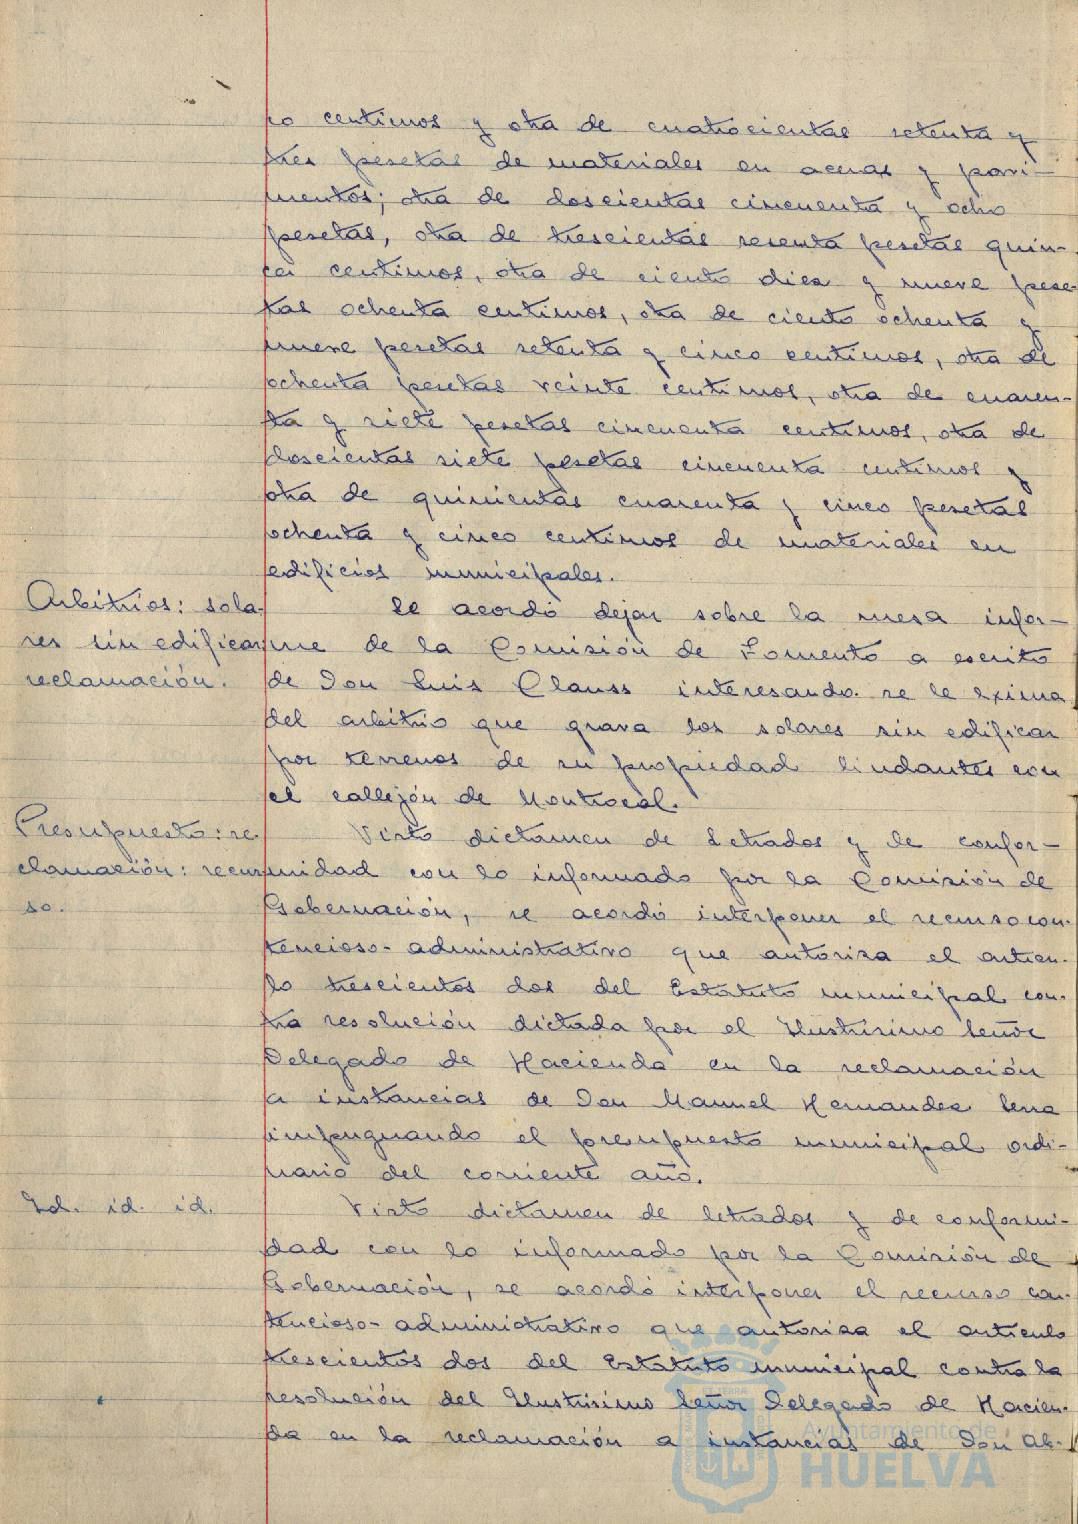 co centimos y otra de cuatrocientas setenta y
tres pesetas de materiales en aceras y pavi-
mentos; otra de doscientas cincuenta y ocho
pesetas, otra de trescientas sesenta pesetas quin-
ce centimos, otra de ciento diez y nueve pese-
tas ochenta centimos, otra de ciento ochenta y
nueve pesetas setenta y cinco centimos, otra de
ochenta pesetas veinte centimos, otra de cuaren-
ta y siete pesetas cincuenta centimos, otra de
doscientas siete pesetas cincuenta centimos y
otra de quinientas cuarenta y cinco pesetas
ochenta y cinco centimos de materiales en
edificios municipales.
Arbitrios: sola-
res sin edificar
reclamación.
Se acordó dejar sobre la mesa infor-
me de la Comisión de Fomento a escrito
de Don Luis Clauss interesando se le exima
del arbitrio que grava los solares sin edificar
por terrenos de su propiedad lindantes con
el callejón de Montrocal.
Presupuesto: re-
clamación: recur-
so.
Visto dictamen de Letrados y de confor-
midad con lo informado por la Comisión de
Gobernación, se acordó interponer el recurso con-
tencioso-administrativo que autoriza el artícu-
lo trescientos dos del Estatuto municipal con-
tra resolución dictada por el Ilustrísimo Señor
Delegado de Hacienda en la reclamación
a instancias de Don Manuel Hernandez Serra
impugnando el presupuesto municipal ordi-
nario del corriente año.
Id. id. id.
Visto dictamen de letrados y de conformi-
dad con lo informado por la Comisión de
Gobernación, se acordó interponer el recurso con-
tencioso-administrativo que autoriza el articulo
trescientos dos del Estatuto municipal contra la
resolución del Ilustrísimo Señor Delegado de Hacien-
da en la reclamación a instancias de Don Al-
Ayuntamiento de
HUELVA